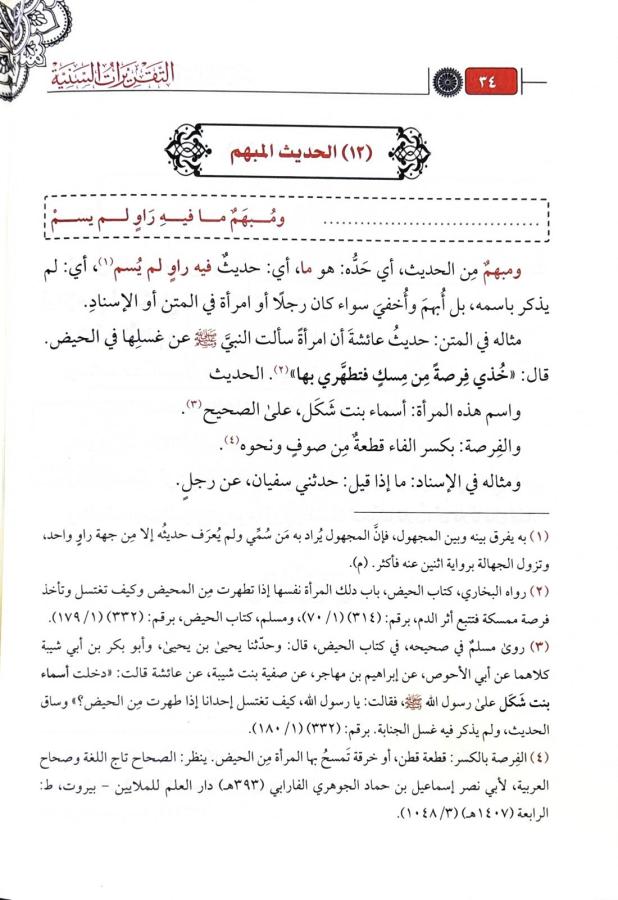 ٣٤
التقريرات السنية
(١٢) الحديث المبهم
.......................................... ومُـبهَمٌ مـا فيـهِ رَاوٍ لـم يسمْ
ومبهمٌ مِن الحديث، أي حَدُّه: هو ما، أي: حديثٌ فيه راوٍ لم يُسم(١)، أي: لم
يذكر باسمه، بل أُبهمَ وأُخفيَ سواء كان رجلًا أو امرأة في المتن أو الإسنادِ.
مثاله في المتن: حديثُ عائشةَ أن امرأةً سألت النبيَّ ﷺ عن غسلِها في الحيض.
قال: «خُذي فِرصةً مِن مِسكٍ فتطهَّري بها»(٢). الحديث
واسم هذه المرأة: أسماء بنت شَكَل، على الصحيح(٣).
والفِرصة: بكسر الفاء قطعةٌ مِن صوفٍ ونحوه(٤).
ومثاله في الإسناد: ما إذا قيل: حدثني سفيان، عن رجلٍ.
(١) به يفرق بينه وبين المجهول، فإنَّ المجهول يُراد به مَن سُمِّي ولم يُعرَف حديثُه إلا مِن جهة راوٍ واحد،
وتزول الجهالة برواية اثنين عنه فأكثر. (م).
(٢) رواه البخاري، كتاب الحيض، باب دلك المرأة نفسها إذا تطهرت مِن المحيض وكيف تغتسل وتأخذ
فرصة ممسكة فتتبع أثر الدم، برقم: (٣١٤) (١/ ٧٠)، ومسلم، كتاب الحيض، برقم: (٣٣٢) (١/ ١٧٩).
(٣) روى مسلمٌ في صحيحه، في كتاب الحيض، قال: وحدّثنا يحيىٰ بن يحيىٰ، وأبو بكر بن أبي شيبة
كلاهما عن أبي الأحوص، عن إبراهيم بن مهاجر، عن صفية بنت شيبة، عن عائشة قالت: «دخلت أسماء
بنت شَكَل علىٰ رسول الله ﷺ، فقالت: يا رسول الله، كيف تغتسل إحدانا إذا طهرت مِن الحيض؟» وساق
الحديث، ولم يذكر فيه غسل الجنابة. برقم: (٣٣٢) (١/ ١٨٠).
(٤) الفِرصة بالكسر: قطعة قطن، أو خرقة تَمسحُ بها المرأة مِن الحيض. ينظر: الصحاح تاج اللغة وصحاح
العربية، لأبي نصر إسماعيل بن حماد الجوهري الفارابي (٣٩٣هـ) دار العلم للملايين – بيروت، ط:
الرابعة (١٤٠٧هـ) (٣/ ١٠٤٨).